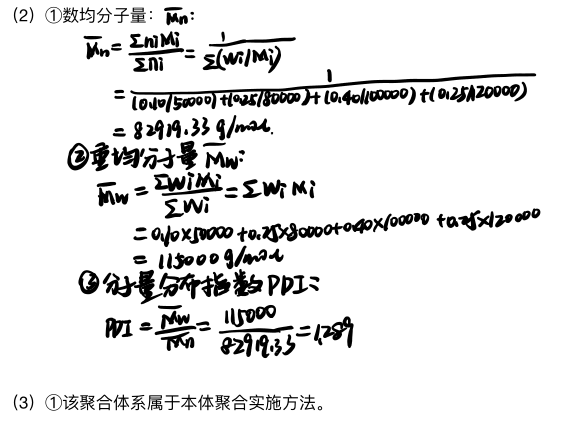 (2) ①数均分子量：M̅n:
M̅n = ΣniMi/Σni = 1/Σ(Wi/Mi)
= 1/((0.10/50000)+(0.25/80000)+(0.40/100000)+(0.25/120000))
= 82919.33 g/mol.
②重均分子量 M̅w:
M̅w = ΣWiMi/ΣWi = ΣWiMi
= 0.10×50000+0.25×80000+0.40×100000+0.25×120000
= 115000 g/mol
③分子量分布指数PDI:
PDI = M̅w/M̅n = 115000/82919.33 = 1.289
(3) ①该聚合体系属于本体聚合实施方法。